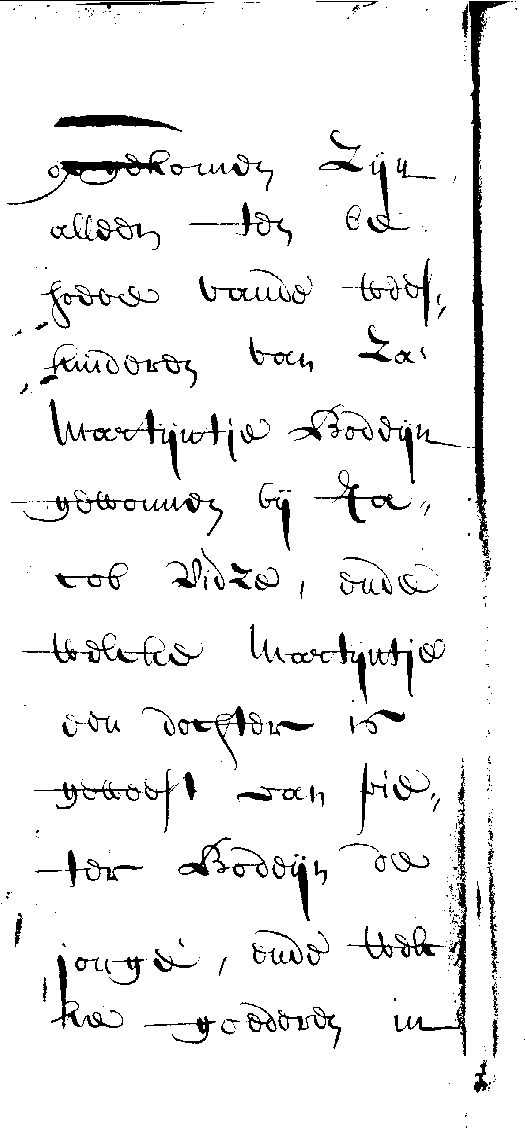 gekomen Zijn
alleen ten be
hoeve vande Wees,,
kinderen van Za:
Martijntje Boddijn
gewonnen bij Ja,,
cob Vidze, ende
Welcke Martijntje
een dochter is
geweest van pie,,
ter Boddijn de
jonge, ende Welc
ke goederen in